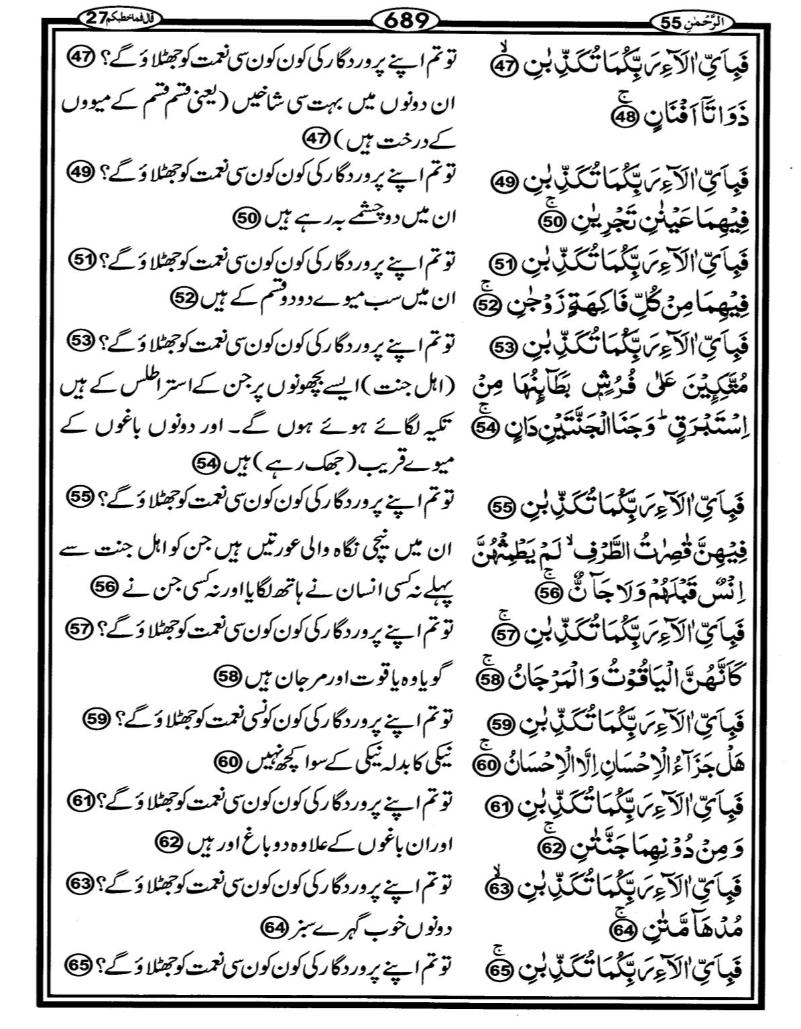 الرَّحْمٰنِ 55
689
قال فما خطبكم 27
فَبِاَيِّ اٰلَآءِ رَبِّكُمَا تُكَذِّبٰنِ ۙ 47
تو تم اپنے پروردگار کی کون کون سی نعمت کو جھٹلاؤ گے؟ 47
ذَوَاتَآ اَفْنَانٍ ۚ 48
ان دونوں میں بہت سی شاخیں (یعنی قسم قسم کے میووں
کے درخت ہیں) 47
فَبِاَيِّ اٰلَآءِ رَبِّكُمَا تُكَذِّبٰنِ 49
تو تم اپنے پروردگار کی کون کون سی نعمت کو جھٹلاؤ گے؟ 49
فِيْهِمَا عَيْنٰنِ تَجْرِيٰنِ ۚ 50
ان میں دو چشمے بہ رہے ہیں 50
فَبِاَيِّ اٰلَآءِ رَبِّكُمَا تُكَذِّبٰنِ 51
تو تم اپنے پروردگار کی کون کون سی نعمت کو جھٹلاؤ گے؟ 51
فِيْهِمَا مِنْ كُلِّ فَاكِهَةٍ زَوْجٰنِ ۚ 52
ان میں سب میوے دو دو قسم کے ہیں 52
فَبِاَيِّ اٰلَآءِ رَبِّكُمَا تُكَذِّبٰنِ 53
تو تم اپنے پروردگار کی کون کون سی نعمت کو جھٹلاؤ گے؟ 53
مُتَّكِـِٕيْنَ عَلٰى فُرُشٍۭ بَطَآئِنُهَا مِنْ
اِسْتَبْرَقٍ ؕ وَجَنَا الْجَنَّتَيْنِ دَانٍ ۚ 54
(اہل جنت) ایسے بچھونوں پر جن کے استر اطلس کے ہیں
تکیہ لگائے ہوئے ہوں گے۔ اور دونوں باغوں کے
میوے قریب (جھک رہے) ہیں 54
فَبِاَيِّ اٰلَآءِ رَبِّكُمَا تُكَذِّبٰنِ 55
تو تم اپنے پروردگار کی کون کون سی نعمت کو جھٹلاؤ گے؟ 55
فِيْهِنَّ قٰصِرٰتُ الطَّرْفِ ۙ لَمْ يَطْمِثْهُنَّ
اِنْسٌ قَبْلَهُمْ وَلَا جَآنٌّ ۚ 56
ان میں نیچی نگاہ والی عورتیں ہیں جن کو اہل جنت سے
پہلے نہ کسی انسان نے ہاتھ لگایا اور نہ کسی جن نے 56
فَبِاَيِّ اٰلَآءِ رَبِّكُمَا تُكَذِّبٰنِ ۚ 57
تو تم اپنے پروردگار کی کون کون سی نعمت کو جھٹلاؤ گے؟ 57
كَاَنَّهُنَّ الْيَاقُوْتُ وَالْمَرْجَانُ ۚ 58
گویا وہ یاقوت اور مرجان ہیں 58
فَبِاَيِّ اٰلَآءِ رَبِّكُمَا تُكَذِّبٰنِ 59
تو تم اپنے پروردگار کی کون کونسی نعمت کو جھٹلاؤ گے؟ 59
هَلْ جَزَآءُ الْاِحْسَانِ اِلَّا الْاِحْسَانُ ۚ 60
نیکی کا بدلہ نیکی کے سوا کچھ نہیں 60
فَبِاَيِّ اٰلَآءِ رَبِّكُمَا تُكَذِّبٰنِ 61
تو تم اپنے پروردگار کی کون کون سی نعمت کو جھٹلاؤ گے؟ 61
وَمِنْ دُوْنِهِمَا جَنَّتٰنِ ۚ 62
اور ان باغوں کے علاوہ دو باغ اور ہیں 62
فَبِاَيِّ اٰلَآءِ رَبِّكُمَا تُكَذِّبٰنِ ۙ 63
تو تم اپنے پروردگار کی کون کون سی نعمت کو جھٹلاؤ گے؟ 63
مُدْهَآمَّتٰنِ ۚ 64
دونوں خوب گہرے سبز 64
فَبِاَيِّ اٰلَآءِ رَبِّكُمَا تُكَذِّبٰنِ ۚ 65
تو تم اپنے پروردگار کی کون کون سی نعمت کو جھٹلاؤ گے؟ 65